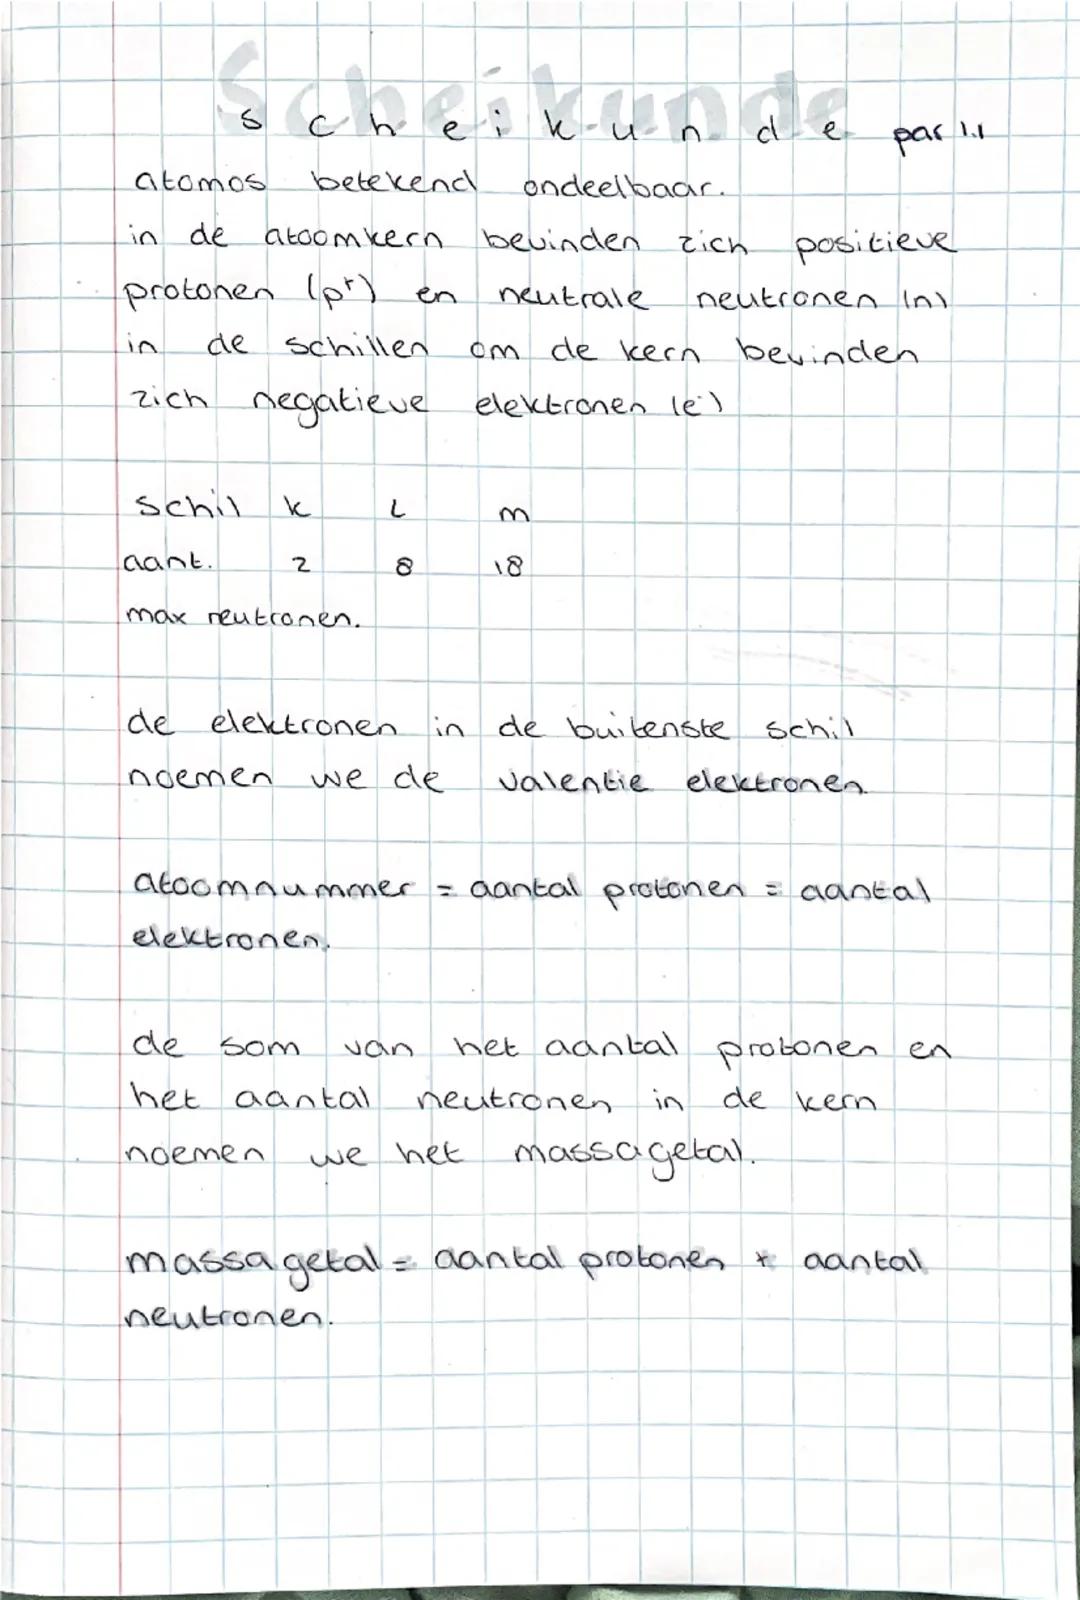 Scheikunde par 1.1
atomos betekend ondeelbaar.
in de atoomkern bevinden zich positieve
protonen (p⁺) en neutrale neutronen (n)
in de schillen om de kern bevinden
zich negatieve elektronen (e⁻)
schil K L M
aant. 2 8 18
max neutronen.
de elektronen in de buitenste schil
noemen we de valentie elektronen.
atoomnummer = aantal protonen = aantal
elektronen.
de som van het aantal protonen en
het aantal neutronen in de kern
noemen we het massagetal.
massagetal = aantal protonen + aantal
neutronen.